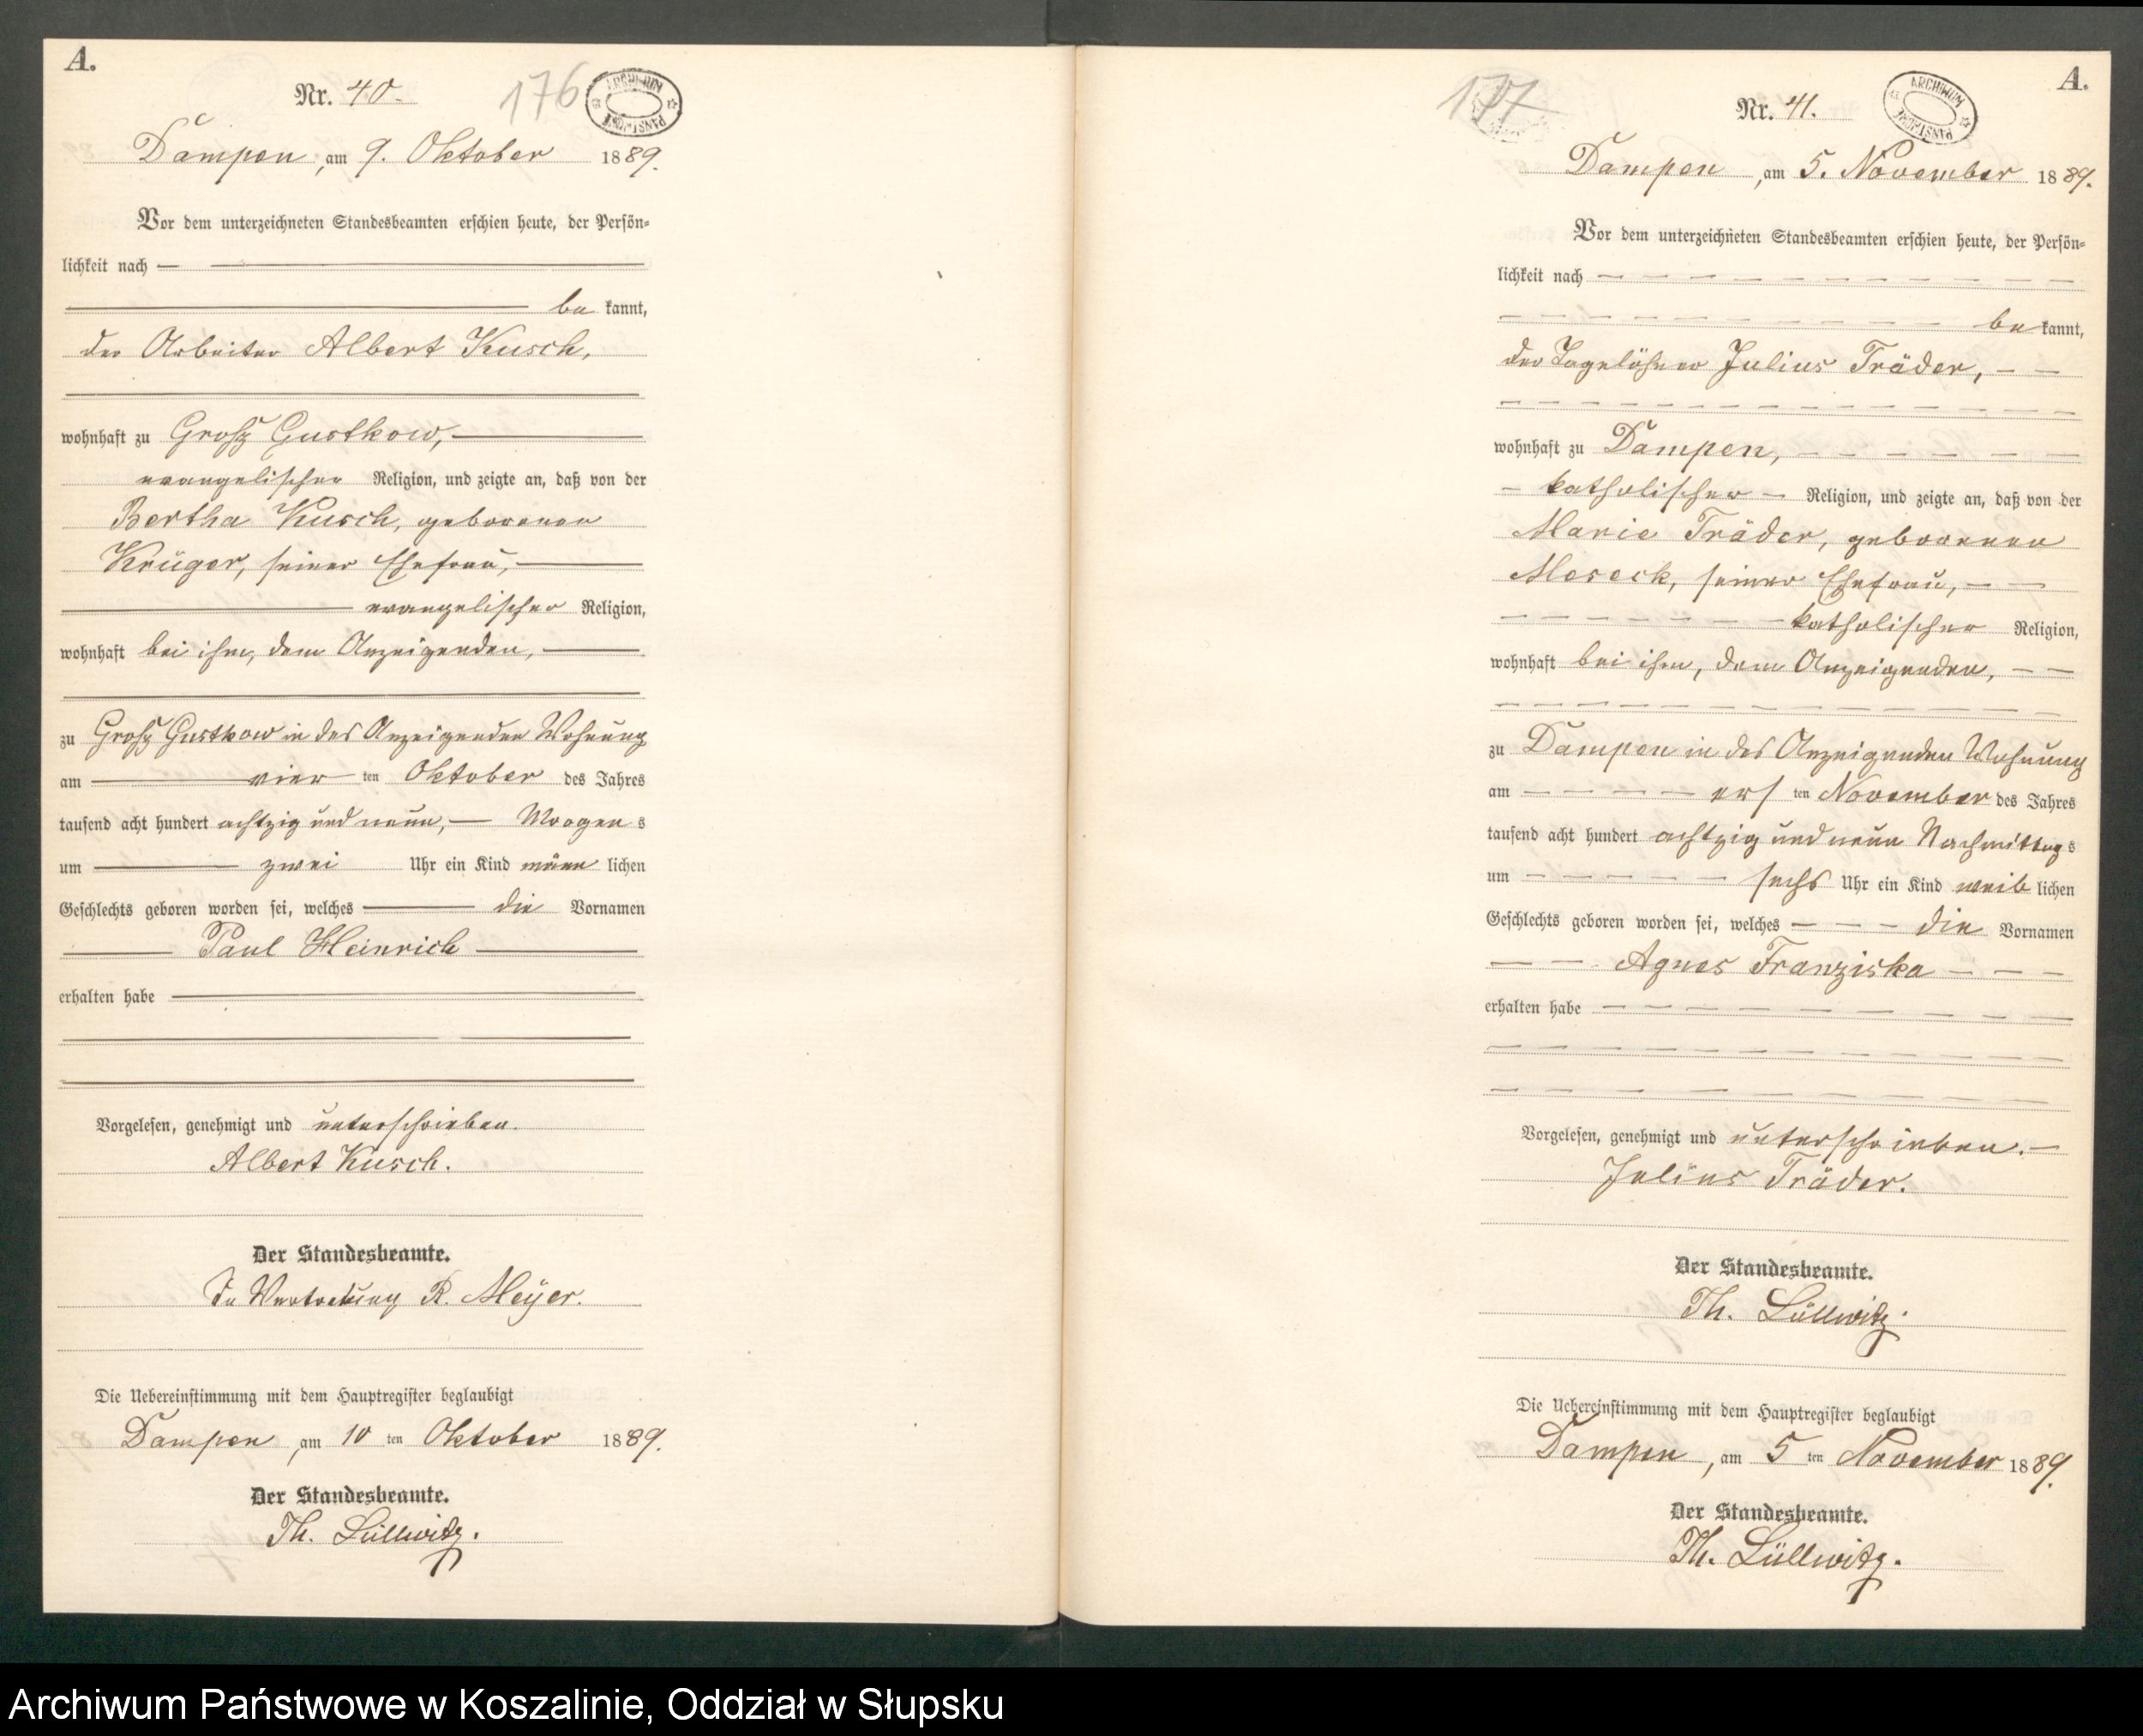 A.
Nr. 40.
176
ARCHIWUM PAŃSTWOWE
Dampen, am 9. Oktober 1889.
Vor dem unterzeichneten Standesbeamten erschien heute, der Persön-
lichkeit nach
be kannt,
der Arbeiter Albert Kusch,
wohnhaft zu Groß Gustkow,
evangelischer Religion, und zeigte an, daß von der
Bertha Kusch, geborenen
Krüger, seiner Ehefrau,
evangelischer Religion,
wohnhaft bei ihm, dem Anzeigenden,
zu Groß Gustkow in des Anzeigenden Wohnung
am vier ten Oktober des Jahres
tausend acht hundert achtzig und neun, Morgen s
um zwei Uhr ein Kind männ lichen
Geschlechts geboren worden sei, welches die Vornamen
Paul Heinrich
erhalten habe
Vorgelesen, genehmigt und unterschrieben.
Albert Kusch.
Der Standesbeamte.
In Vertretung R. Meyer.
Die Uebereinstimmung mit dem Hauptregister beglaubigt
Dampen, am 10 ten Oktober 1889.
Der Standesbeamte.
Th. Lüllwitz.
177
A.
Nr. 41.
ARCHIWUM PAŃSTWOWE
Dampen, am 5. November 1889.
Vor dem unterzeichneten Standesbeamten erschien heute, der Persön-
lichkeit nach
be kannt,
der Tagelöhner Julius Träder,
wohnhaft zu Dampen,
katholischer Religion, und zeigte an, daß von der
Marie Träder, geborenen
Meseck, seiner Ehefrau,
katholischer Religion,
wohnhaft bei ihm, dem Anzeigenden,
zu Dampen in des Anzeigenden Wohnung
am ers ten November des Jahres
tausend acht hundert achtzig und neun Nachmittag s
um sechs Uhr ein Kind weib lichen
Geschlechts geboren worden sei, welches die Vornamen
Agnes Franziska
erhalten habe
Vorgelesen, genehmigt und unterschrieben.
Julius Träder.
Der Standesbeamte.
Th. Lüllwitz.
Die Uebereinstimmung mit dem Hauptregister beglaubigt
Dampen, am 5 ten November 1889.
Der Standesbeamte.
Th. Lüllwitz.
Archiwum Państwowe w Koszalinie, Oddział w Słupsku